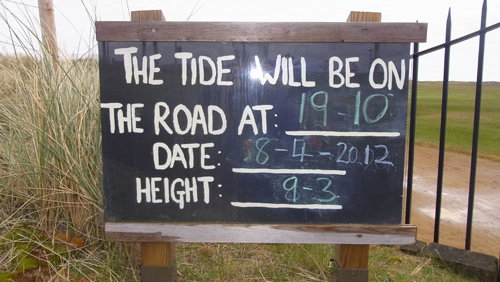 THE TIDE WILL BE ON
THE ROAD AT: 19-10
DATE: 18-4-2012
HEIGHT: 9-3